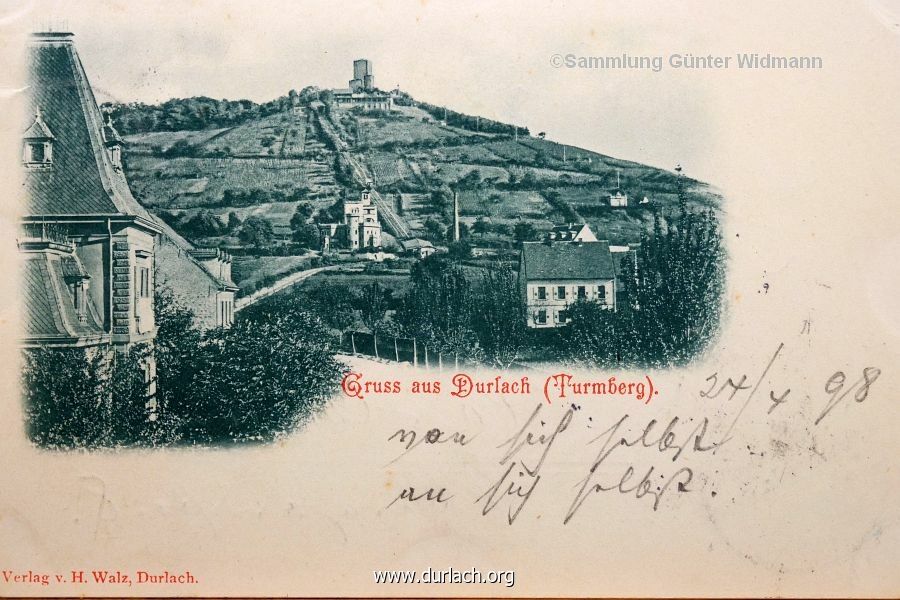 ©Sammlung Günter Widmann
Gruss aus Durlach (Turmberg).
24/4 98
von sich selbst
an sich selbst.
Verlag v. H. Walz, Durlach.
www.durlach.org